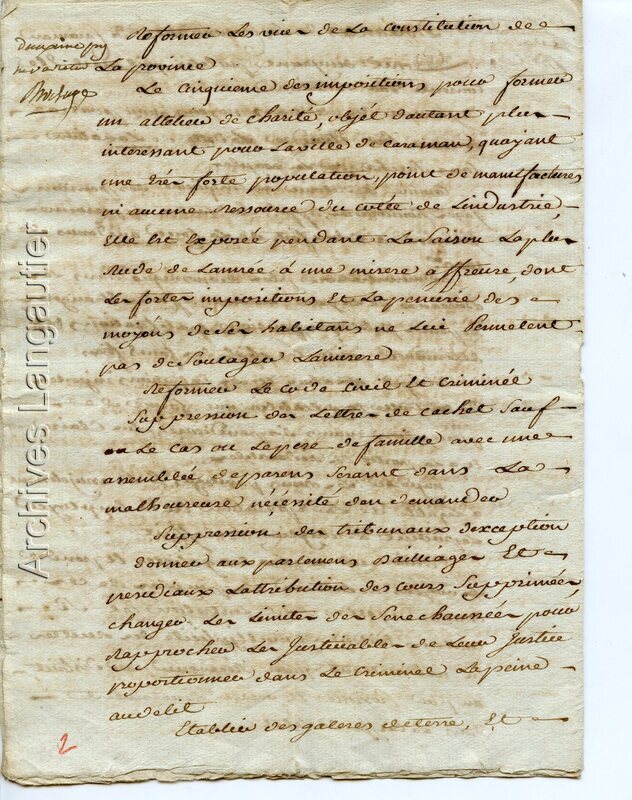 Reformer Les vices de La constitution de
deuxieme pag
ne varietur
La province
Le cinquieme des impositions pour former
un attelier de charité, objét dautant plus
interessant pour La ville de caraman, quayant
une trés forte population, point de manufactures
ni aucune Ressource du cotté de Lindustrie,
Elle Est Exposée pendant La Saison La plus
Rude de Lannée à une misere affreuse, dont
Les fortes impositions Et La penurie des
moyens de Ses habitans ne Lui Permetent
pas de Soulager La misere
Reformer Le code Civil Et Criminél
Suppression des Lettres de cachet Sauf
Le cas ou Le pere de famille avec une
assemblée de parens Seraint dans La
malheureuse nécéssité den demander
Suppression des tribunaux dexception
donner aux parlemens Bailliages Et
présidiaux Lattribution des cours Supprimées,
changer Les Limites des Senechaussées pour
Rapprocher Les Justiciables de Leur Justice
proportionner dans Le Criminel La peine
au delit
Etablir des galeres de terre, Et
2
Archives Langautier